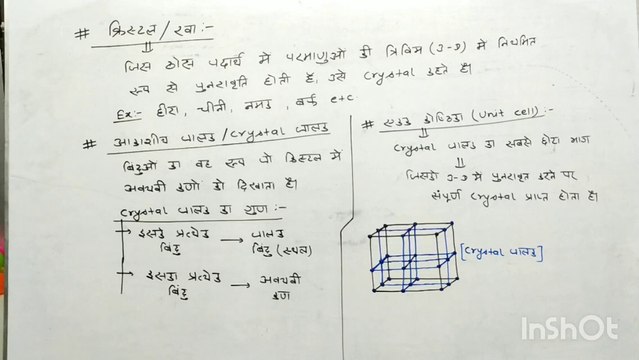 # क्रिस्टल / रवा :-
जिस ठोस पदार्थ में परमाणुओं की त्रिविम (3-D) में नियमित
रूप से पुनरावृत्ति होती है, उसे Crystal कहते है।
Ex:- हीरा, चीनी, नमक, बर्फ etc
# आकाशीय जालक / Crystal जालक
बिंदुओं का वह रूप जो क्रिस्टल में
अवयवी कणों को दिखाता है।
Crystal जालक का गुण :-
→ इसके प्रत्येक बिंदु → जालक बिंदु (स्थल)
→ इसका प्रत्येक बिंदु → अवयवी कण
# एकक कोष्ठिका (Unit cell) :-
Crystal जालक का सबसे छोटा भाग
जिसको 3-D में पुनरावृत करने पर
संपूर्ण Crystal प्राप्त होता है।
[Crystal जालक]
InShOt